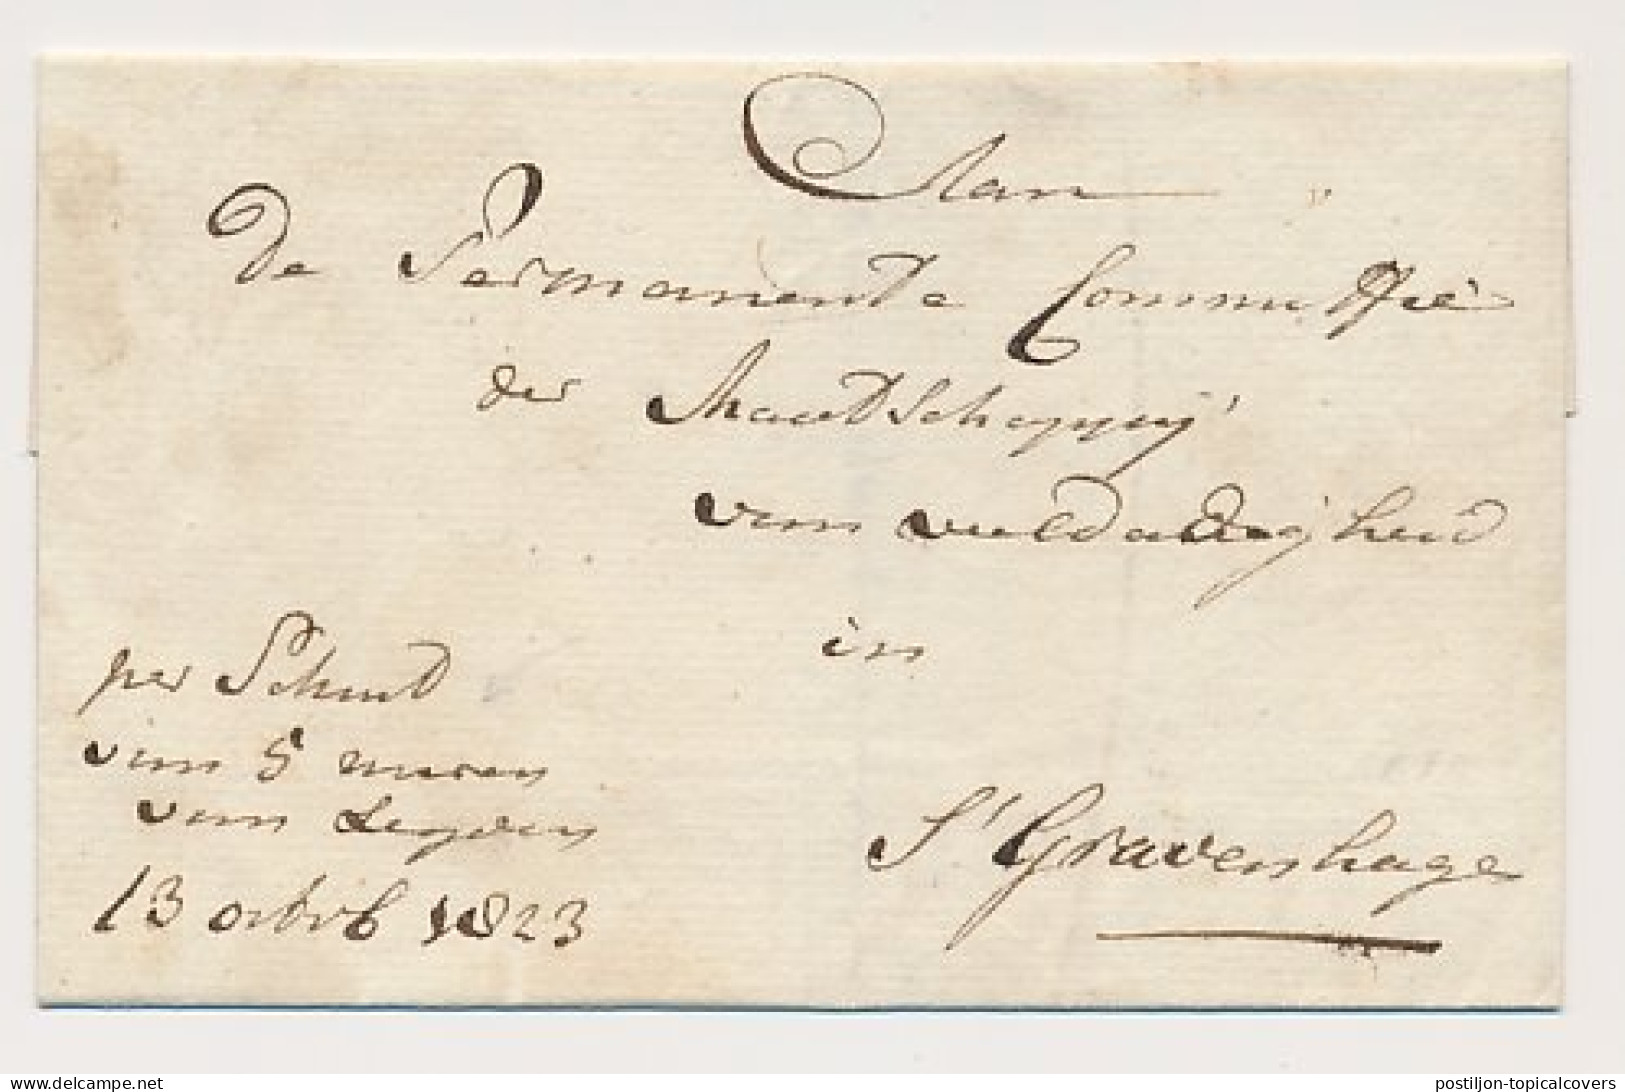 Aan
de Permanente Committie
der Maatschappij
van weldadigheid
in
S' Gravenhage
per Schuit
van 5 uuren
van Leyden
13 octob 1823
delcampe.net
postiljon-topicalcovers